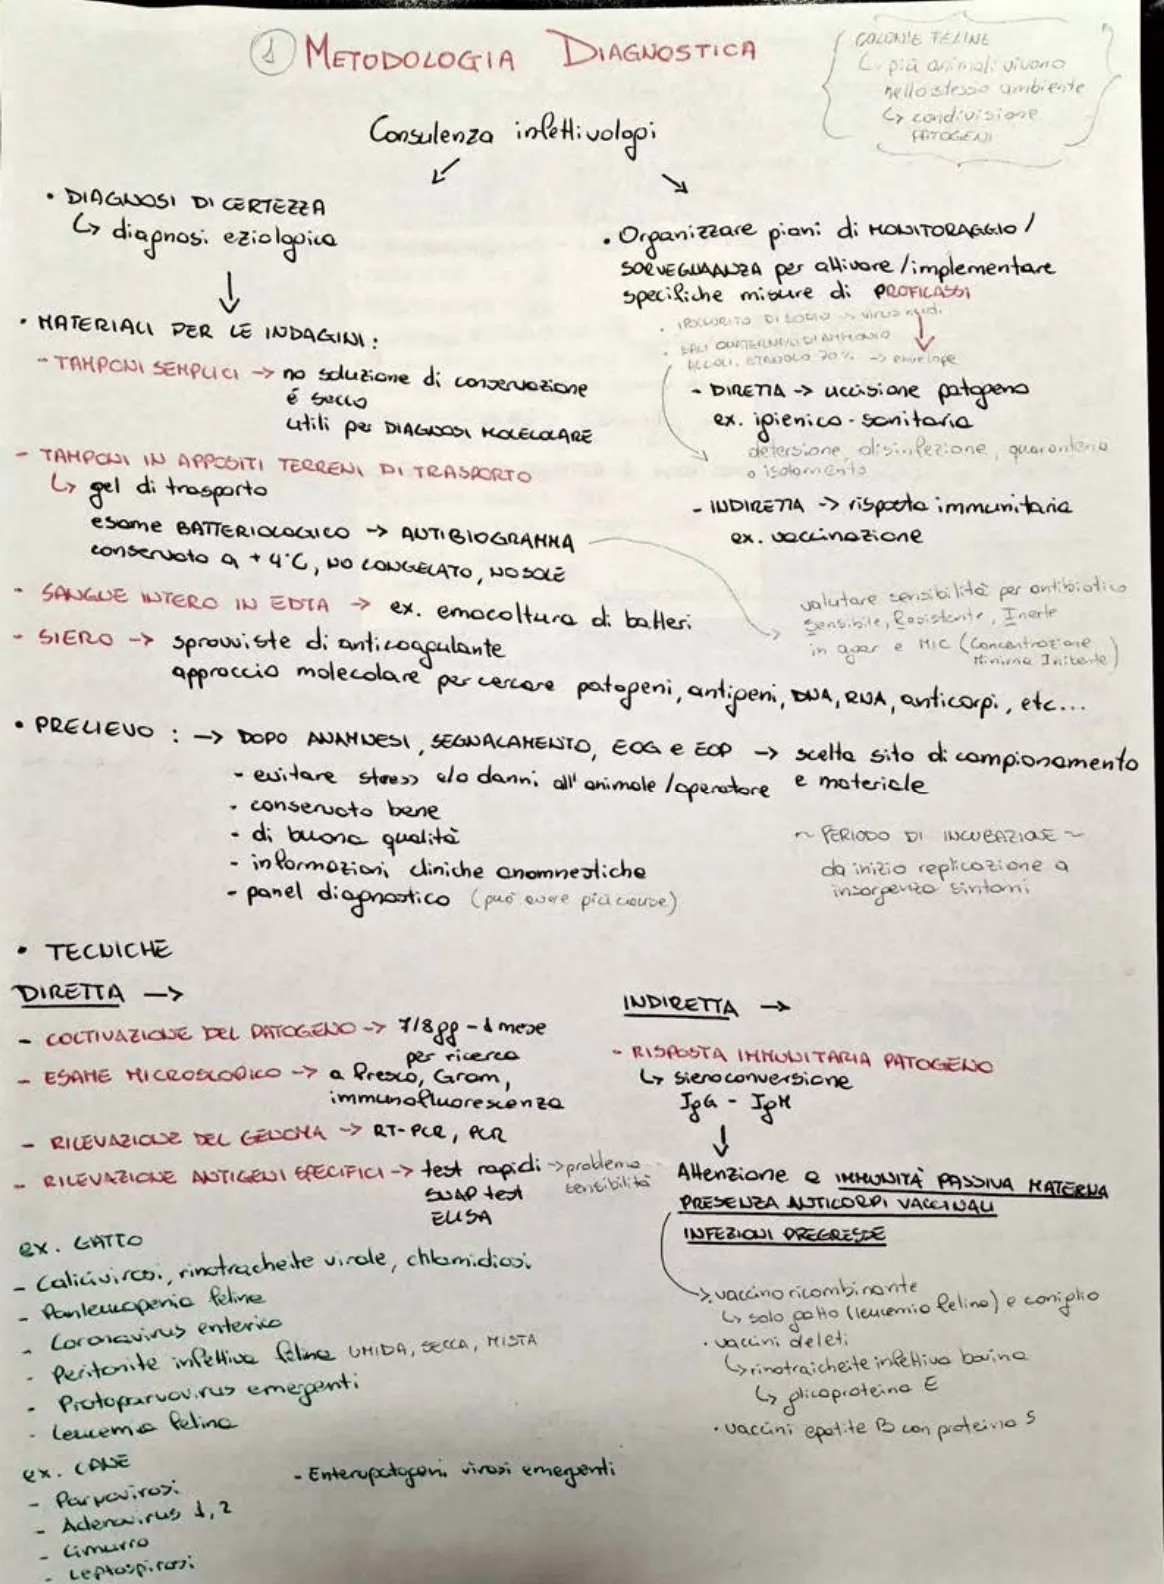 1 METODOLOGIA DIAGNOSTICA
COLONIE FELINE
↳ più animali vivono
nello stesso ambiente
↳ condivisione
PATOGENI
Consulenza infettivologi
• DIAGNOSI DI CERTEZZA
↳ diagnosi eziologica
• MATERIALI PER LE INDAGINI:
- TAMPONI SEMPLICI → no soluzione di conservazione
é secco
utili per DIAGNOSI MOLECOLARE
- TAMPONI IN APPOSITI TERRENI DI TRASPORTO
↳ gel di trasporto
esame BATTERIOLOGICO → ANTIBIOGRAMMA
conservato a +4°C, NO CONGELATO, NO SOLE
- SANGUE INTERO IN EDTA → ex. emocoltura di batteri
- SIERO → sprovviste di anticoagulante
approccio molecolare per cercare patogeni, antigeni, DNA, RNA, anticorpi, etc...
• Organizzare piani di MONITORAGGIO /
SORVEGLIANZA per attivare/implementare
specifiche misure di PROFILASSI
• IPOCLORITO DI SODIO → virus nudi
• SALI QUATERNARI DI AMMONIO
ALCOLI, ETANOLO 70% → envelope
- DIRETTA → uccisione patogeno
ex. igienico-sanitaria
detersione, disinfezione, quarantena
o isolamento
- INDIRETTA → risposta immunitaria
ex. vaccinazione
valutare sensibilità per antibiotico
Sensibile, Resistente, Inerte
in agar e MIC (Concentrazione
Minima Inibente)
• PRELIEVO : → DOPO ANAMNESI, SEGNALAMENTO, EOG e EOP → scelta sito di campionamento
e materiale
- evitare stress e/o danni all'animale/operatore
- conservato bene
- di buona qualità
- informazioni cliniche anamnestiche
- panel diagnostico (può avere più cause)
~ PERIODO DI INCUBAZIONE ~
da inizio replicazione a
insorgenza sintomi
• TECNICHE
DIRETTA →
- COLTIVAZIONE DEL PATOGENO → 7/8 gg - 1 mese
per ricerca
- ESAME MICROSCOPICO → a fresco, Gram,
immunofluorescenza
- RILEVAZIONE DEL GENOMA → RT-PCR, PCR
- RILEVAZIONE ANTIGENI SPECIFICI → test rapidi → problema
sensibilità
SNAP test
ELISA
INDIRETTA →
- RISPOSTA IMMUNITARIA PATOGENO
↳ sieroconversione
IgG - IgM
Attenzione a IMMUNITÀ PASSIVA MATERNA
PRESENZA ANTICORPI VACCINALI
INFEZIONI PREGRESSE
→ vaccino ricombinante
↳ solo gatto (leucemia felina) e coniglio
• vaccini deleti
↳ rinotraicheite infettiva bovina
↳ glicoproteina E
• vaccini epatite B con proteina S
ex. GATTO
- Calicivirosi, rinotracheite virale, chlamidiosi
- Panleucopenia felina
- Coronavirus enterico
- Peritonite infettiva felina UMIDA, SECCA, MISTA
- Protoparvovirus emergenti
- Leucemia felina
ex. CANE
- Parvovirosi
- Adenovirus 1, 2
- Cimurro
- Leptospirosi
- Enteropatogeni virosi emergenti